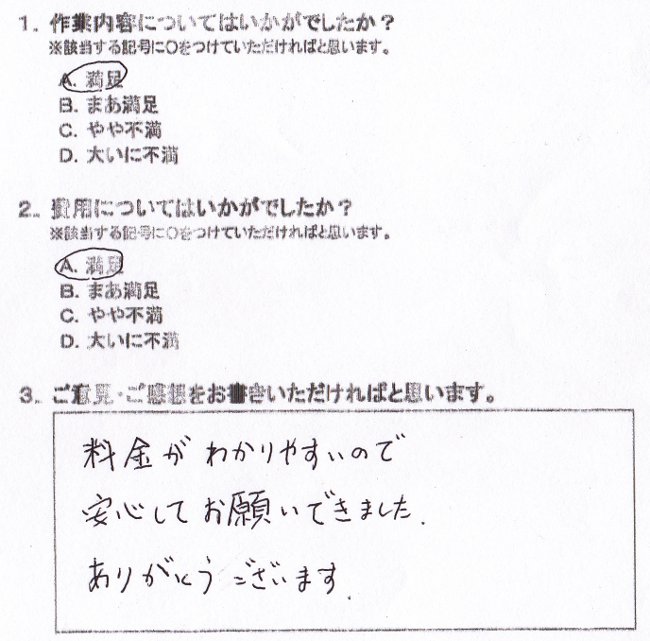 1. 作業内容についてはいかがでしたか？
※該当する記号に〇をつけていただければと思います。
A. 満足
B. まあ満足
C. やや不満
D. 大いに不満
2. 費用についてはいかがでしたか？
※該当する記号に〇をつけていただければと思います。
A. 満足
B. まあ満足
C. やや不満
D. 大いに不満
3. ご意見・ご感想をお書きいただければと思います。
料金がわかりやすいので
安心してお願いできました.
ありがとうございます.